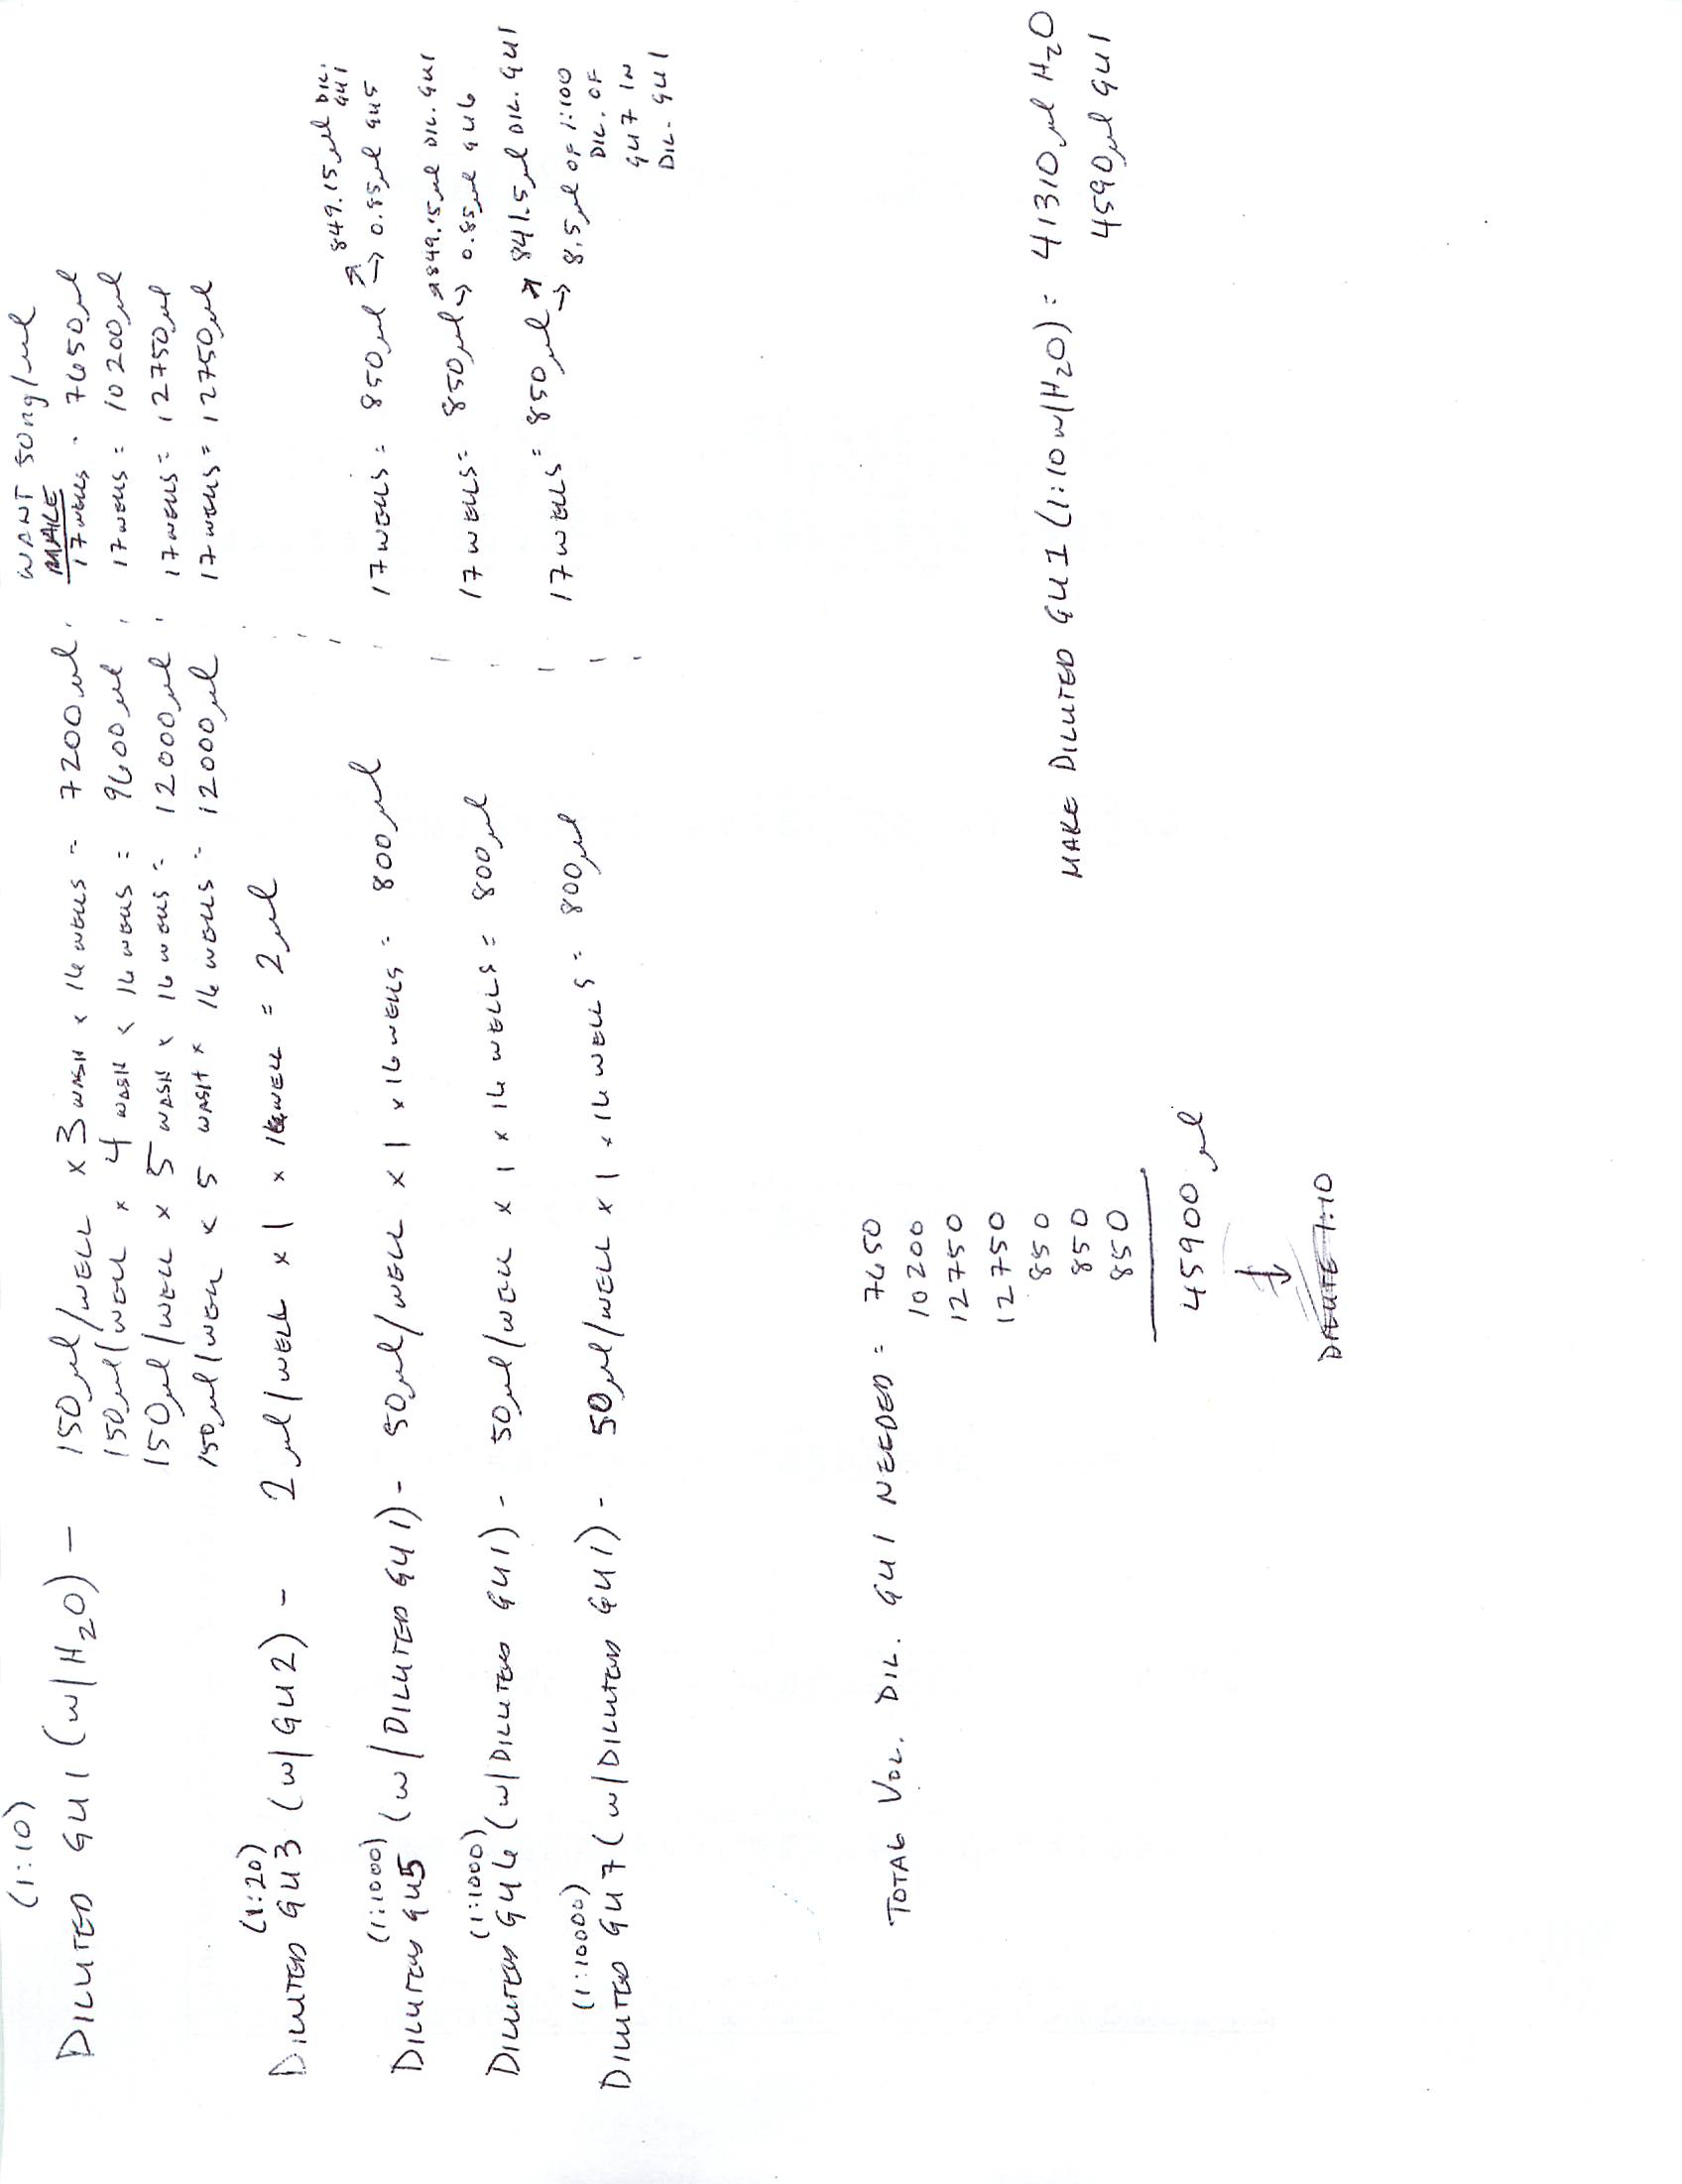 WANT 50ng/ml
(1:10) MAKE
DILUTED GU1 (w/H2O) - 150 µl/WELL x 3 WASH x 16 WELLS = 7200 µl 17 WELLS = 7650 µl
150 µl/WELL x 4 WASH x 16 WELLS = 9600 µl 17 WELLS = 10200 µl
150 µl/WELL x 5 WASH x 16 WELLS = 12000 µl 17 WELLS = 12750 µl
150 µl/WELL x 5 WASH x 16 WELLS = 12000 µl 17 WELLS = 12750 µl
(1:20)
DILUTED GU3 (w/GU2) - 2 µl/WELL x 1 x 1 WELL = 2 µl
849.15 µl DIL. GU1
(1:1000)
DILUTED GU5 (w/DILUTED GU1) - 50 µl/WELL x 1 x 16 WELLS = 800 µl 17 WELLS = 850 µl → 0.85 µl GU5
849.15 µl DIL. GU1
(1:1000)
DILUTED GU6 (w/DILUTED GU1) - 50 µl/WELL x 1 x 16 WELLS = 800 µl 17 WELLS = 850 µl → 0.85 µl GU6
841.5 µl DIL. GU1
(1:10000)
DILUTED GU7 (w/DILUTED GU1) - 50 µl/WELL x 1 x 16 WELLS = 800 µl 17 WELLS = 850 µl → 8.5 µl OF 1:100
DIL. OF
GU7 IN
DIL. GU1
TOTAL VOL. DIL. GU1 NEEDED = 7650
10200
12750
12750
850
850
850
45900 µl
DILUTE 1:10
MAKE DILUTED GU1 (1:10 w/H2O) = 41310 µl H2O
4590 µl GU1